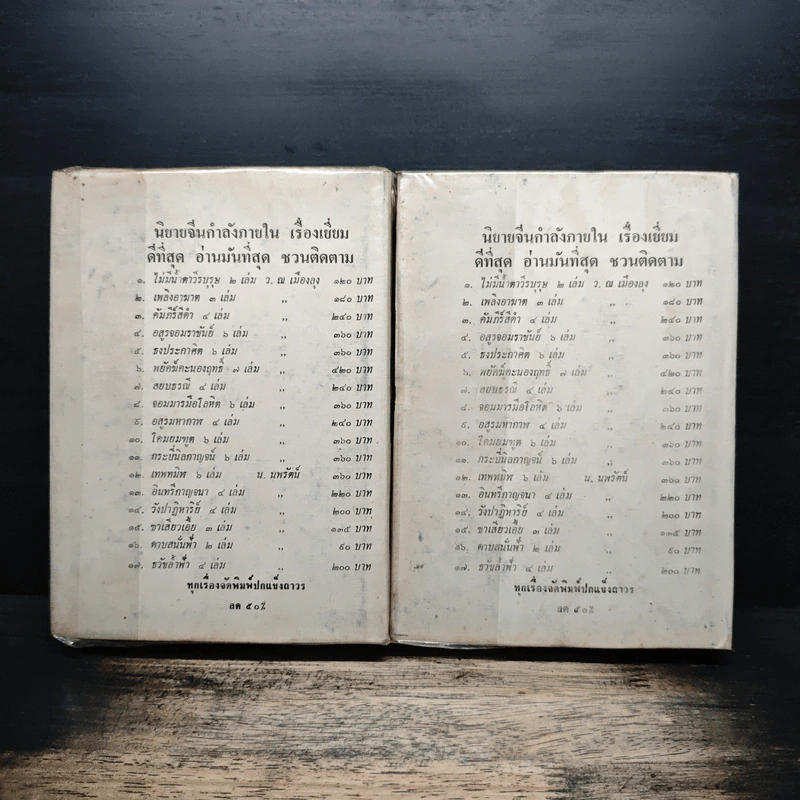 นิยายจีนกำลังภายใน เรื่องเยี่ยม
ดีที่สุด อ่านมันที่สุด ชวนติดตาม
๑. ไม่มีน้ำตาวีรบุรุษ ๒ เล่ม ว. ณ เมืองลุง ๑๒๐ บาท
๒. เพลิงอาฆาต ๓ เล่ม ,, ๑๘๐ บาท
๓. คัมภีร์สีดำ ๔ เล่ม ,, ๒๔๐ บาท
๔. อสูรจอมราชันย์ ๖ เล่ม ,, ๓๖๐ บาท
๕. ธงประกาศิต ๖ เล่ม ,, ๓๖๐ บาท
๖. พยัคฆ์คะนองฤทธิ์ ๗ เล่ม ,, ๔๒๐ บาท
๗. สยบธรณี ๔ เล่ม ,, ๒๔๐ บาท
๘. จอมมารมือโลหิต ๖ เล่ม ,, ๓๖๐ บาท
๙. อสูรมหากาฬ ๔ เล่ม ,, ๒๔๐ บาท
๑๐. โคมยมทูต ๖ เล่ม ,, ๓๖๐ บาท
๑๑. กระบี่นิลกาญจน์ ๖ เล่ม ,, ๓๖๐ บาท
๑๒. เทพทมิฬ ๖ เล่ม น. นพรัตน์ ๓๖๐ บาท
๑๓. อินทรีกาญจนา ๔ เล่ม ,, ๒๒๐ บาท
๑๔. วังปาฏิหาริย์ ๔ เล่ม ,, ๒๐๐ บาท
๑๕. ชาเสียวเอี้ย ๓ เล่ม ,, ๑๓๕ บาท
๑๖. ดาบสนั่นฟ้า ๒ เล่ม ,, ๙๐ บาท
๑๗. ธวัชล้ำฟ้า ๔ เล่ม ,, ๒๐๐ บาท
ทุกเรื่องจัดพิมพ์ปกแข็งถาวร
ลด ๕๐%
นิยายจีนกำลังภายใน เรื่องเยี่ยม
ดีที่สุด อ่านมันที่สุด ชวนติดตาม
๑. ไม่มีน้ำตาวีรบุรุษ ๒ เล่ม ว. ณ เมืองลุง ๑๒๐ บาท
๒. เพลิงอาฆาต ๓ เล่ม ,, ๑๘๐ บาท
๓. คัมภีร์สีดำ ๔ เล่ม ,, ๒๔๐ บาท
๔. อสูรจอมราชันย์ ๖ เล่ม ,, ๓๖๐ บาท
๕. ธงประกาศิต ๖ เล่ม ,, ๓๖๐ บาท
๖. พยัคฆ์คะนองฤทธิ์ ๗ เล่ม ,, ๔๒๐ บาท
๗. สยบธรณี ๔ เล่ม ,, ๒๔๐ บาท
๘. จอมมารมือโลหิต ๖ เล่ม ,, ๓๖๐ บาท
๙. อสูรมหากาฬ ๔ เล่ม ,, ๒๔๐ บาท
๑๐. โคมยมทูต ๖ เล่ม ,, ๓๖๐ บาท
๑๑. กระบี่นิลกาญจน์ ๖ เล่ม ,, ๓๖๐ บาท
๑๒. เทพทมิฬ ๖ เล่ม น. นพรัตน์ ๓๖๐ บาท
๑๓. อินทรีกาญจนา ๔ เล่ม ,, ๒๒๐ บาท
๑๔. วังปาฏิหาริย์ ๔ เล่ม ,, ๒๐๐ บาท
๑๕. ชาเสียวเอี้ย ๓ เล่ม ,, ๑๓๕ บาท
๑๖. ดาบสนั่นฟ้า ๒ เล่ม ,, ๙๐ บาท
๑๗. ธวัชล้ำฟ้า ๔ เล่ม ,, ๒๐๐ บาท
ทุกเรื่องจัดพิมพ์ปกแข็งถาวร
ลด ๕๐%